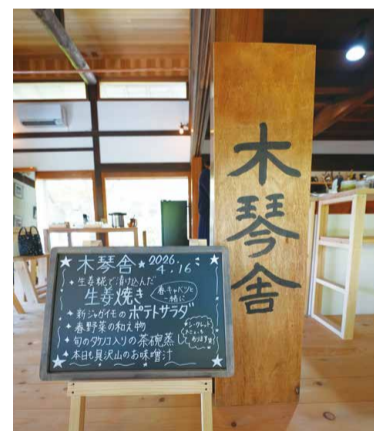 木琴舎
★木琴舎★ 2006.4.16
・生姜糀で漬け込んだ
生姜焼き
春キャベツと一緒に
・新ジャガイモのポテトサラダ
・春野菜の和え物
・旬のタケノコ入りの茶碗蒸し
・本日も貝沢山のお味噌汁
シークレット
メニューも
あります